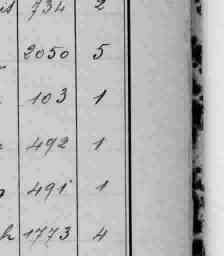 734 2
2050 5
103 1
492 1
491 1
h 1773 4